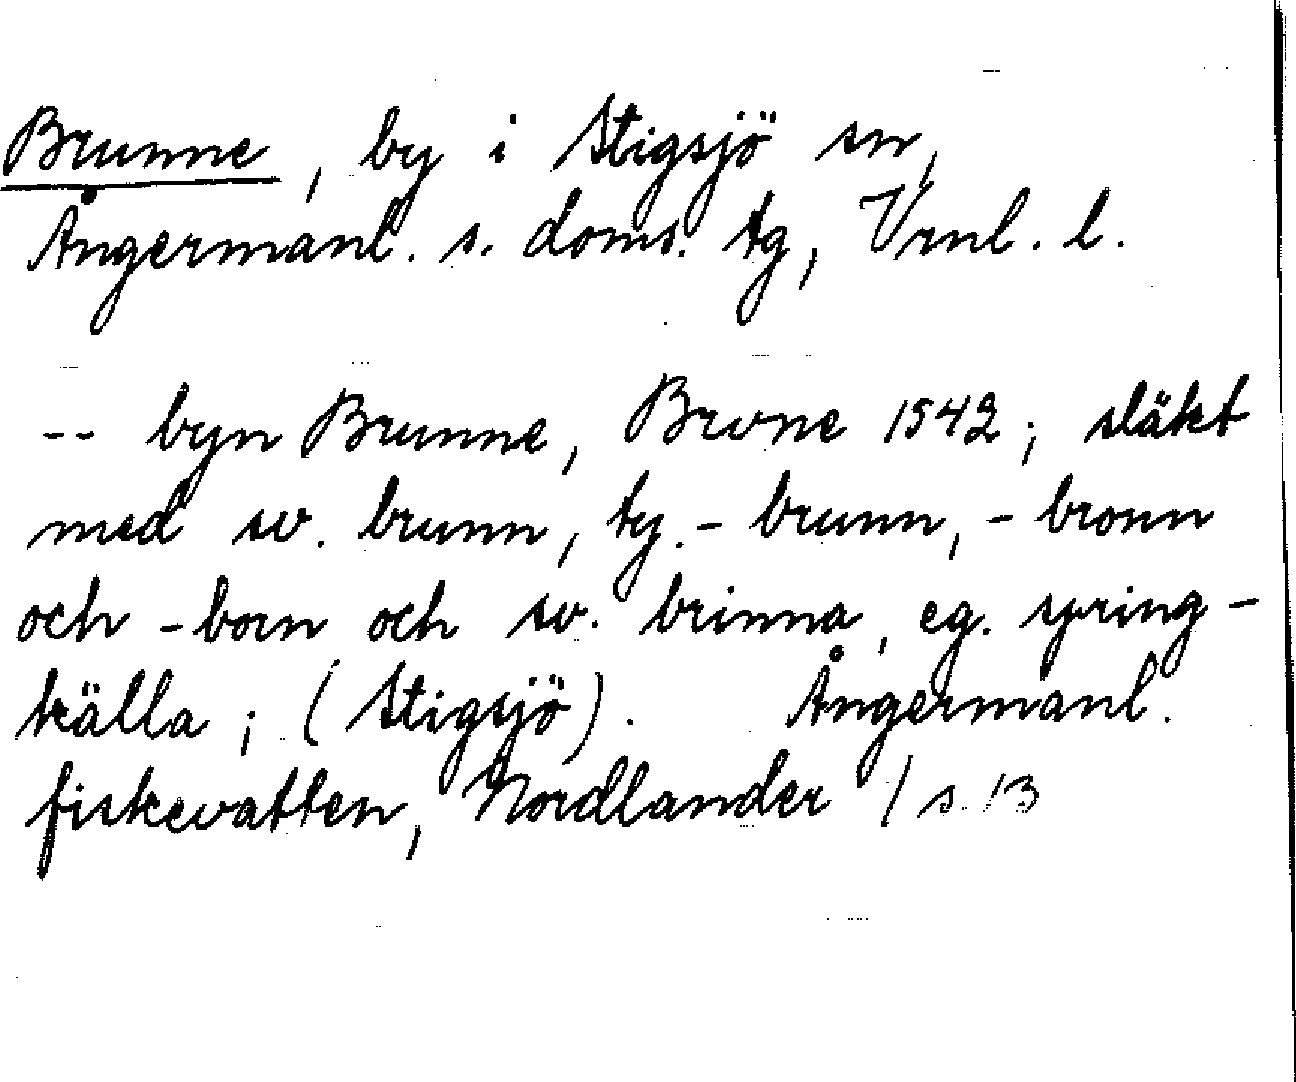 Brunne, by i Stigsjö sn,
Ångermanl. s. doms. tg, Vrnl. l.
-- byn Brunne, Brvne 1542; släkt
med sv. brunn, ty. -brunn, -bronn
och -born och sv. brinna, eg. spring-
källa; (Stigsjö). Ångermanl.
fiskevatten, Nordlander / s. 13